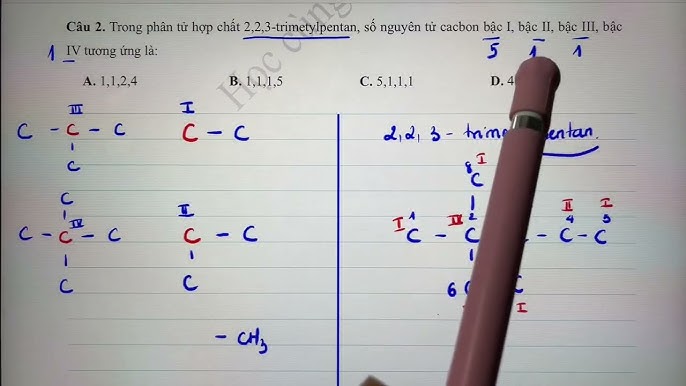 Câu 2. Trong phân tử hợp chất 2,2,3-trimetylpentan, số nguyên tử cacbon bậc I, bậc II, bậc III, bậc
5 1 1
1 IV tương ứng là:
A. 1,1,2,4 B. 1,1,1,5 C. 5,1,1,1 D. 4
Học cùng
III I
C - C - C C - C 2, 2, 3 - trim entan.
C
8 I
C C
IV II I 1 IV 2 II 4 I 5
C - C - C C - C C - C - C - C
C C 6 C C
I
- CH3